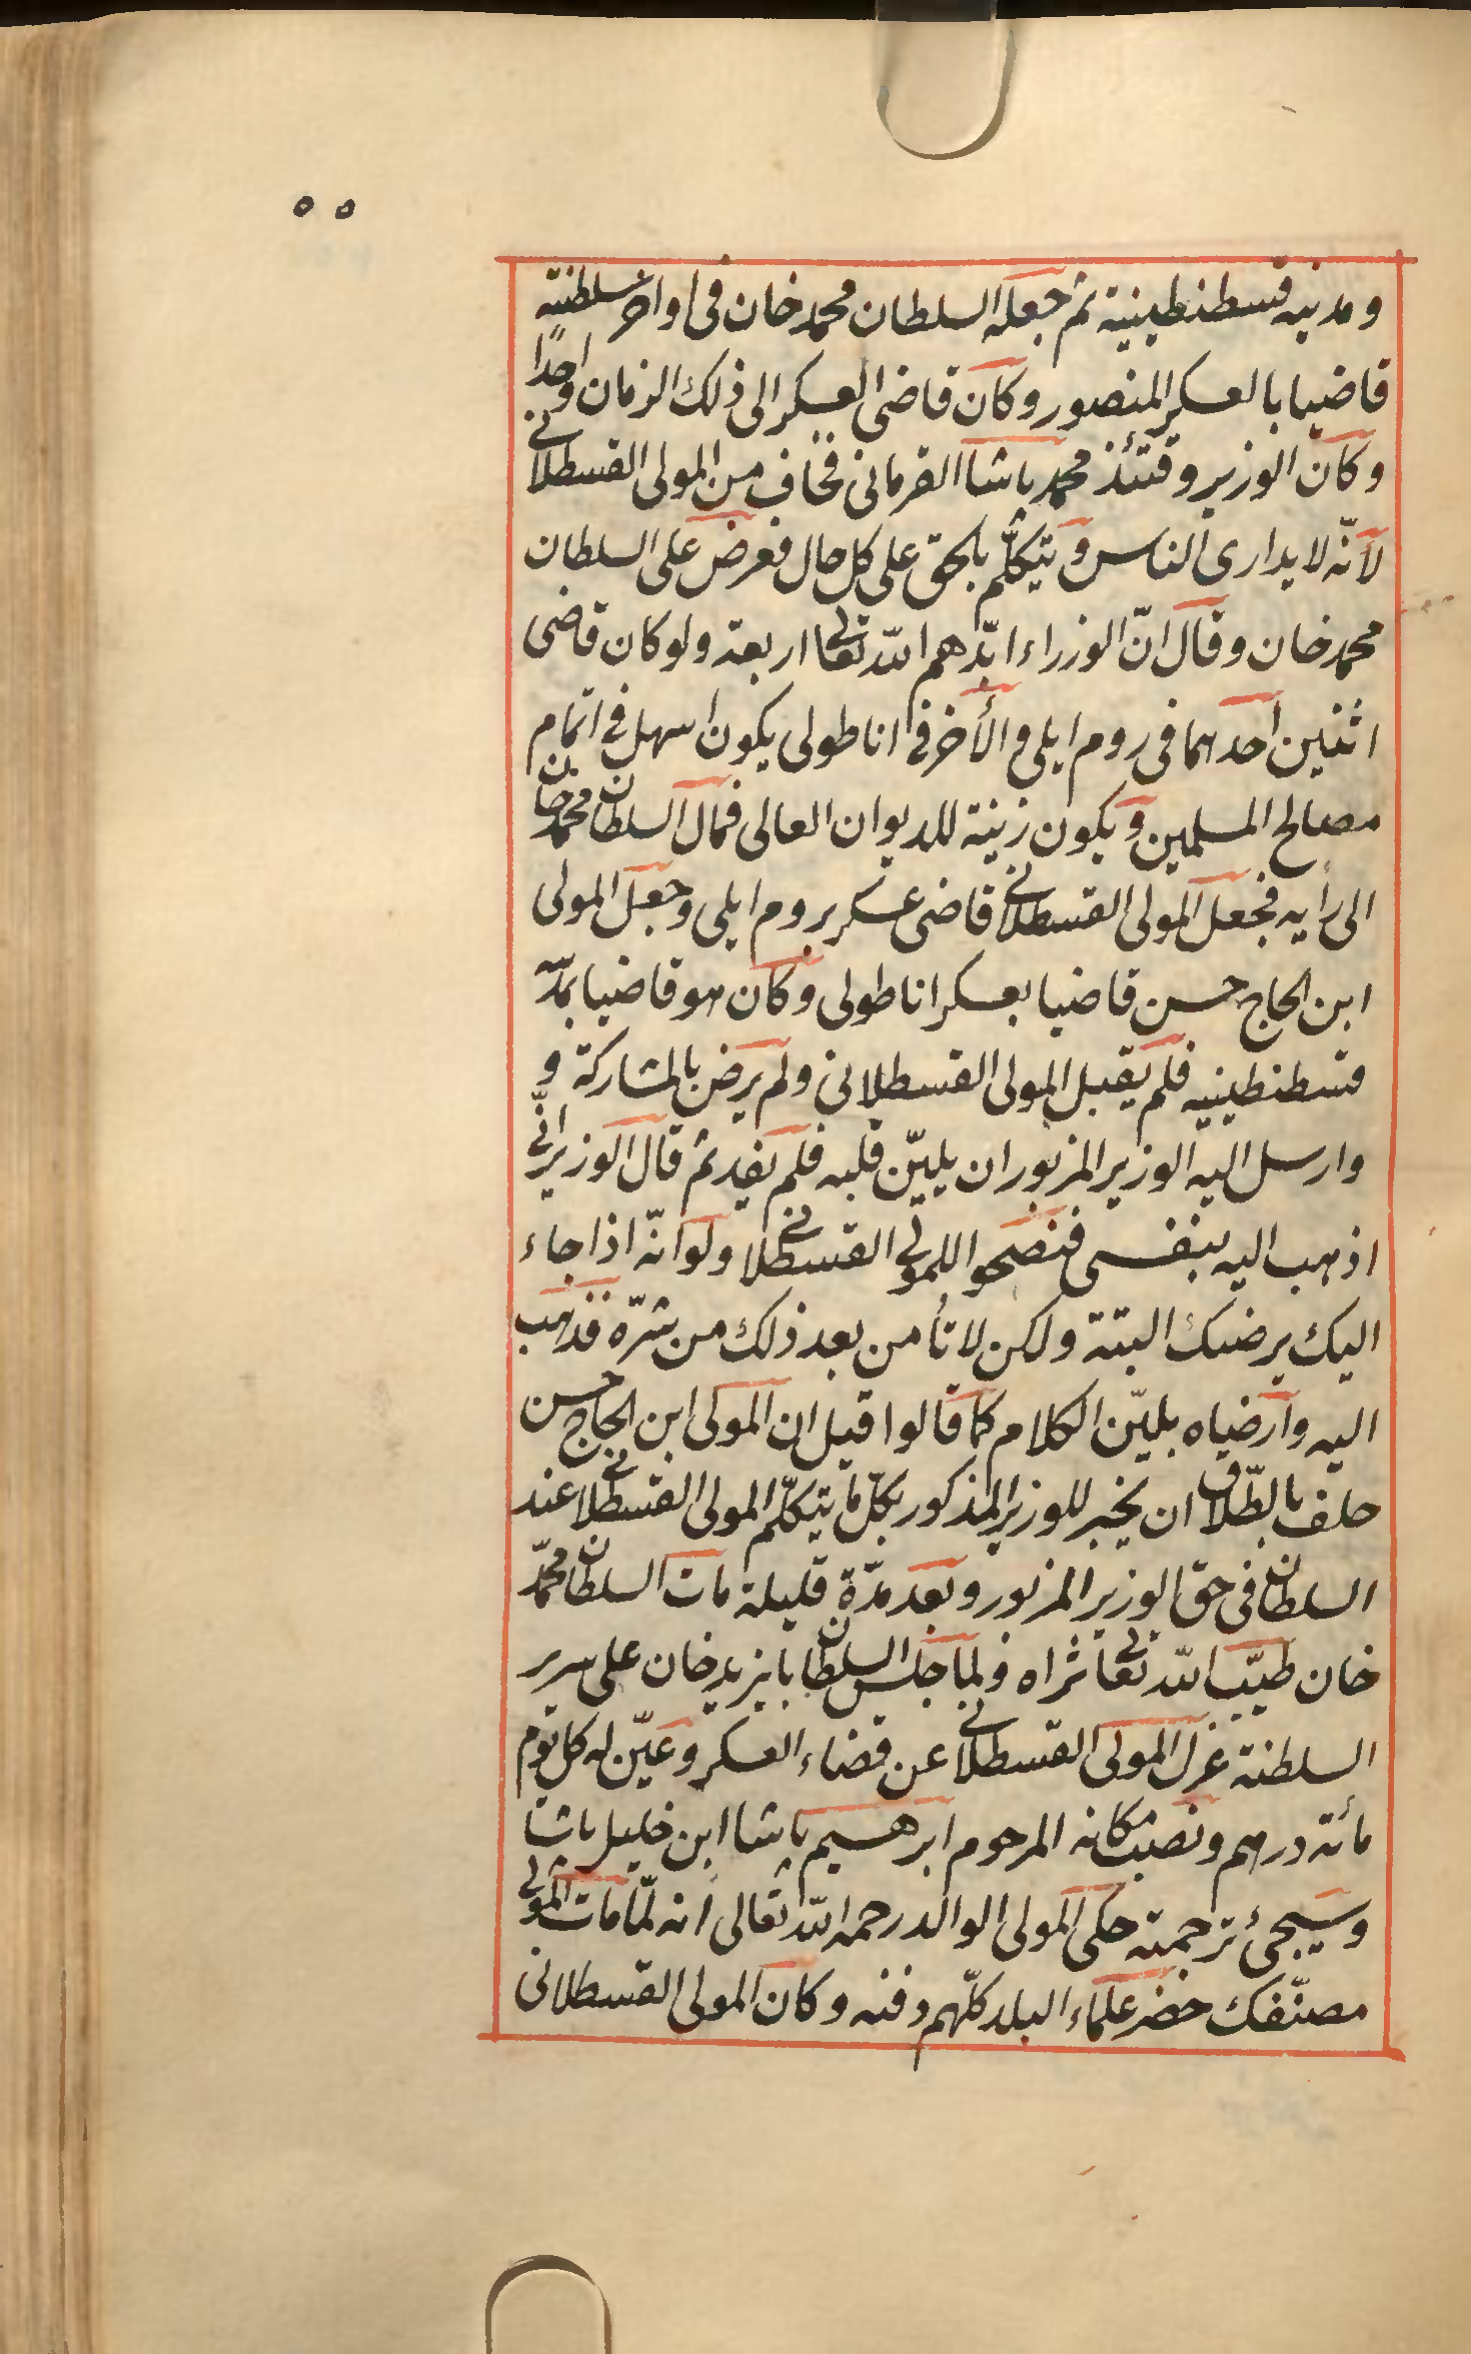 ٥٥
ومدينه قسطنطينية ثم جعله السلطان محمد خان فى اواخر سلطنته
قاضيا بالعسكر المنصور وكان قاضى العسكر الى ذلك الزمان واحدًا
وكان الوزير وقتئذ محمد پاشا القرمانى فخاف من المولى القسطلانى
لأنّه لا يدارى الناس ويتكلّم بالحق على كل حال فعرض على السلطان
محمد خان وقال انّ الوزراء ايّدهم الله تعالى اربعة ولو كان قاضى
اثنين احدهما فى روم ايلى والأخر فى اناطولى يكون اسهل فى اتمام
مصالح المسلمين ويكون زينة للديوان العالى فمال السلطان محمد خان
الى رأيه فجعل المولى القسطلانى قاضى عسكر بروم ايلى وجعل المولى
ابن الحاج حسن قاضيا بعسكر اناطولى وكان هو قاضيا بمدينة
قسطنطينيه فلم يقبل المولى القسطلانى ولم يرض بالمشاركة و
وارسل اليه الوزير المزبور ان يليّن قلبه فلم يفد ثم قال الوزير انّى
اذهب اليه بنفسى فنصحوا للمولى القسطلانى ولو انّه اذا جاء
اليك يرضيك البتة ولكن لا تأمن بعد ذلك من شرّه فذهب
اليه وارضياه بليّن الكلام كما قالوا قيل ان المولى ابن الحاج حسن
حلف بالطّلاق ان يخبر للوزير المذكور بكلّ ما يتكلّم المولى القسطلانى عند
السلطان فى حق الوزير المزبور وبعد مدّة قليلة مات السلطان محمّد
خان طيّب الله تعالى ثراه ولما جلس السلطان بايزيد خان على سرير
السلطنة عزل المولى القسطلانى عن قضاء العسكر وعيّن له كل يوم
مأئة درهم ونصب مكانه المرحوم ابرهيم پاشا ابن خليل پاشا
وسيجئ ترجمته حكى المولى الوالد رحمه الله تعالى انه لمّا مات المولى
مصنّفك حضر علماء البلد كلّهم دفنه وكان المولى القسطلانى